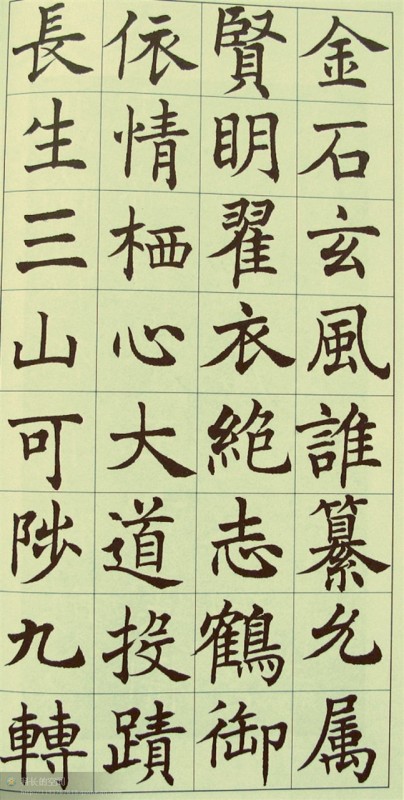 金石玄風誰纂允属
賢明翟衣絶志鶴御
依情栖心大道投蹟
長生三山可陟九轉